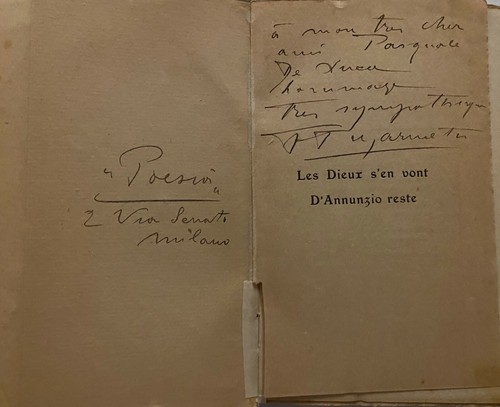 "Poesia"
2 Via Senato
Milano
à mon très cher
ami Pasquale
De Luca
hommage
très sympathique
F T Marinetti
Les Dieux s'en vont
D'Annunzio reste